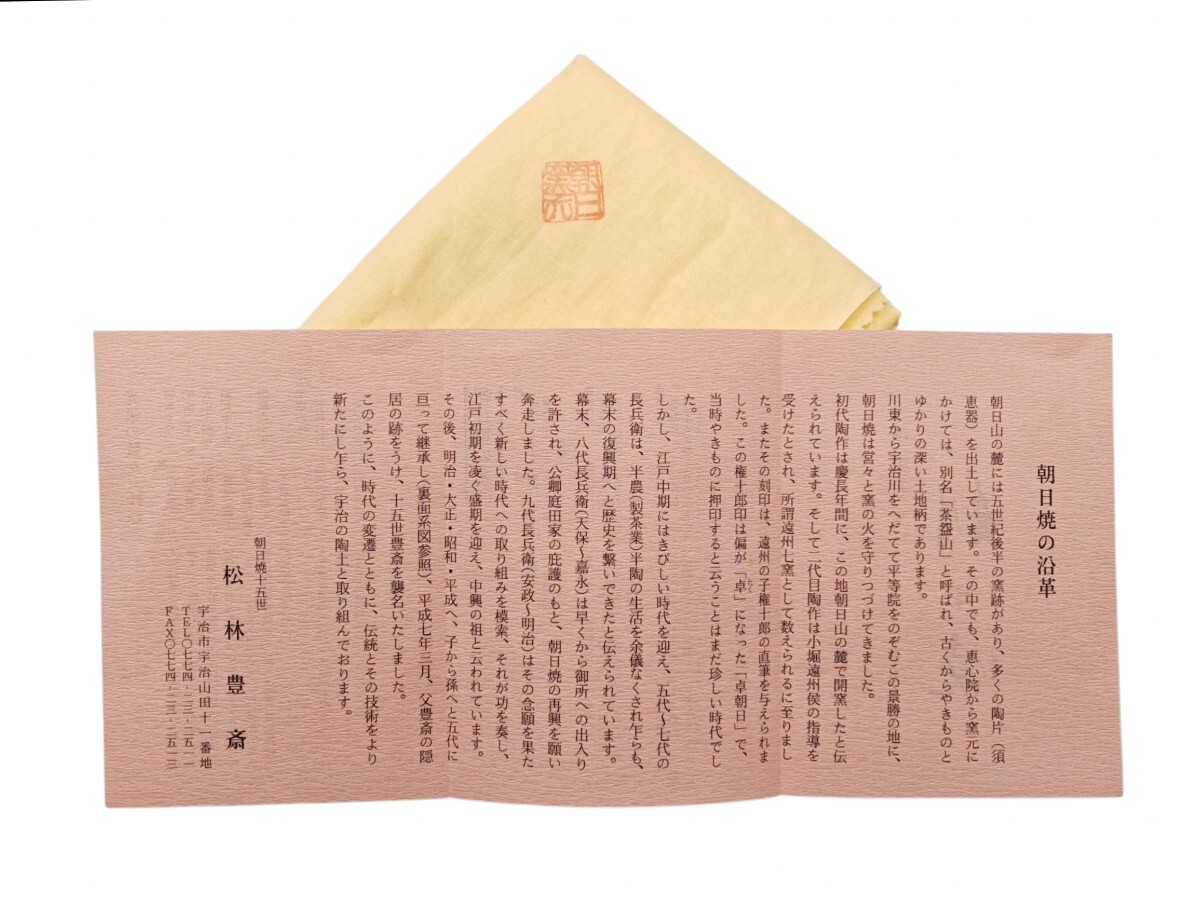 朝日焼の沿革
朝日山の麓には五世紀後半の窯跡があり、多くの陶片（須
恵器）を出土しています。その中でも、恵心院から窯元に
かけては、別名「茶盌山」と呼ばれ、古くからやきものと
ゆかりの深い土地柄であります。
川東から宇治川をへだてて平等院をのぞむこの景勝の地に、
朝日焼は営々と窯の火を守りつづけてきました。
初代陶作は慶長年間に、この地朝日山の麓で開窯したと伝
えられています。そして二代目陶作は小堀遠州侯の指導を
受けたとされ、所謂遠州七窯として数えられるに至りまし
た。またその刻印は、遠州の子権十郎の直筆を与えられま
した。この権十郎印は偏が「卓」になった「卓朝日」で、
当時やきものに押印すると云うことはまだ珍しい時代でし
た。
しかし、江戸中期にはきびしい時代を迎え、五代〜七代の
長兵衛は、半農（製茶業）半陶の生活を余儀なくされ乍らも、
幕末の復興期へと歴史を繋いできたと伝えられています。
幕末、八代長兵衛（天保〜嘉永）は早くから御所への出入り
を許され、公卿庭田家の庇護のもと、朝日焼の再興を願い
奔走しました。九代長兵衛（安政〜明治）はその念願を果た
すべく新しい時代への取り組みを模索、それが功を奏し、
江戸初期を凌ぐ盛期を迎え、中興の祖と云われています。
その後、明治・大正・昭和・平成へ、子から孫へと五代に
亘って継承し（裏面系図参照）、平成七年三月、父豊斎の隠
居の跡をうけ、十五世豊斎を襲名いたしました。
このように、時代の変遷とともに、伝統とその技術をより
新たにし乍ら、宇治の陶土と取り組んでおります。
朝日焼十五世
松林豊斎
宇治市宇治山田十一番地
TEL〇七七四-二三-二五一一
FAX〇七七四-二三-二五一三
朝日
窯元